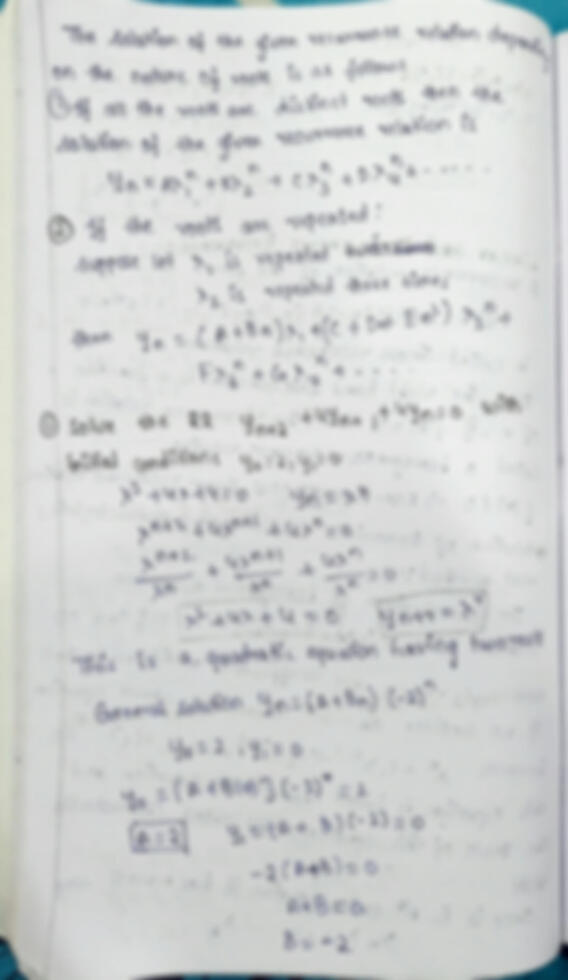 The solution of the given recurrence relation depends
on the nature of roots is as follows
① If all the roots are distinct roots then the
solution of the given recurrence relation is
yₙ = Aλ₁ⁿ + Bλ₂ⁿ + Cλ₃ⁿ + Dλ₄ⁿ + .....
② If the roots are repeated:
Suppose let λ₁ is repeated
λ₂ is repeated three times
then yₙ = (A+Bn)λ₁ + (C + Dn + En²) λ₂ⁿ +
Fλ₃ⁿ + Gλ₄ⁿ + ....
① Solve the RR yₙ₊₂ + 4yₙ₊₁ + 4yₙ = 0 with
initial conditions y₀ = 2, y₁ = 0
λ² + 4λ + 4 = 0 yₙ = λⁿ
λⁿ⁺² + 4λⁿ⁺¹ + 4λⁿ = 0
λⁿ⁺²/λⁿ + 4λⁿ⁺¹/λⁿ + 4λⁿ/λⁿ = 0
λ² + 4λ + 4 = 0
This is a quadratic equation having
General solution yₙ = (A+Bn) (-2)ⁿ
y₀ = 2, y₁ = 0
= 2
A = 2 y₁ = (A + B)(-2) = 0
-2(A+B) = 0
A+B = 0
B = -2